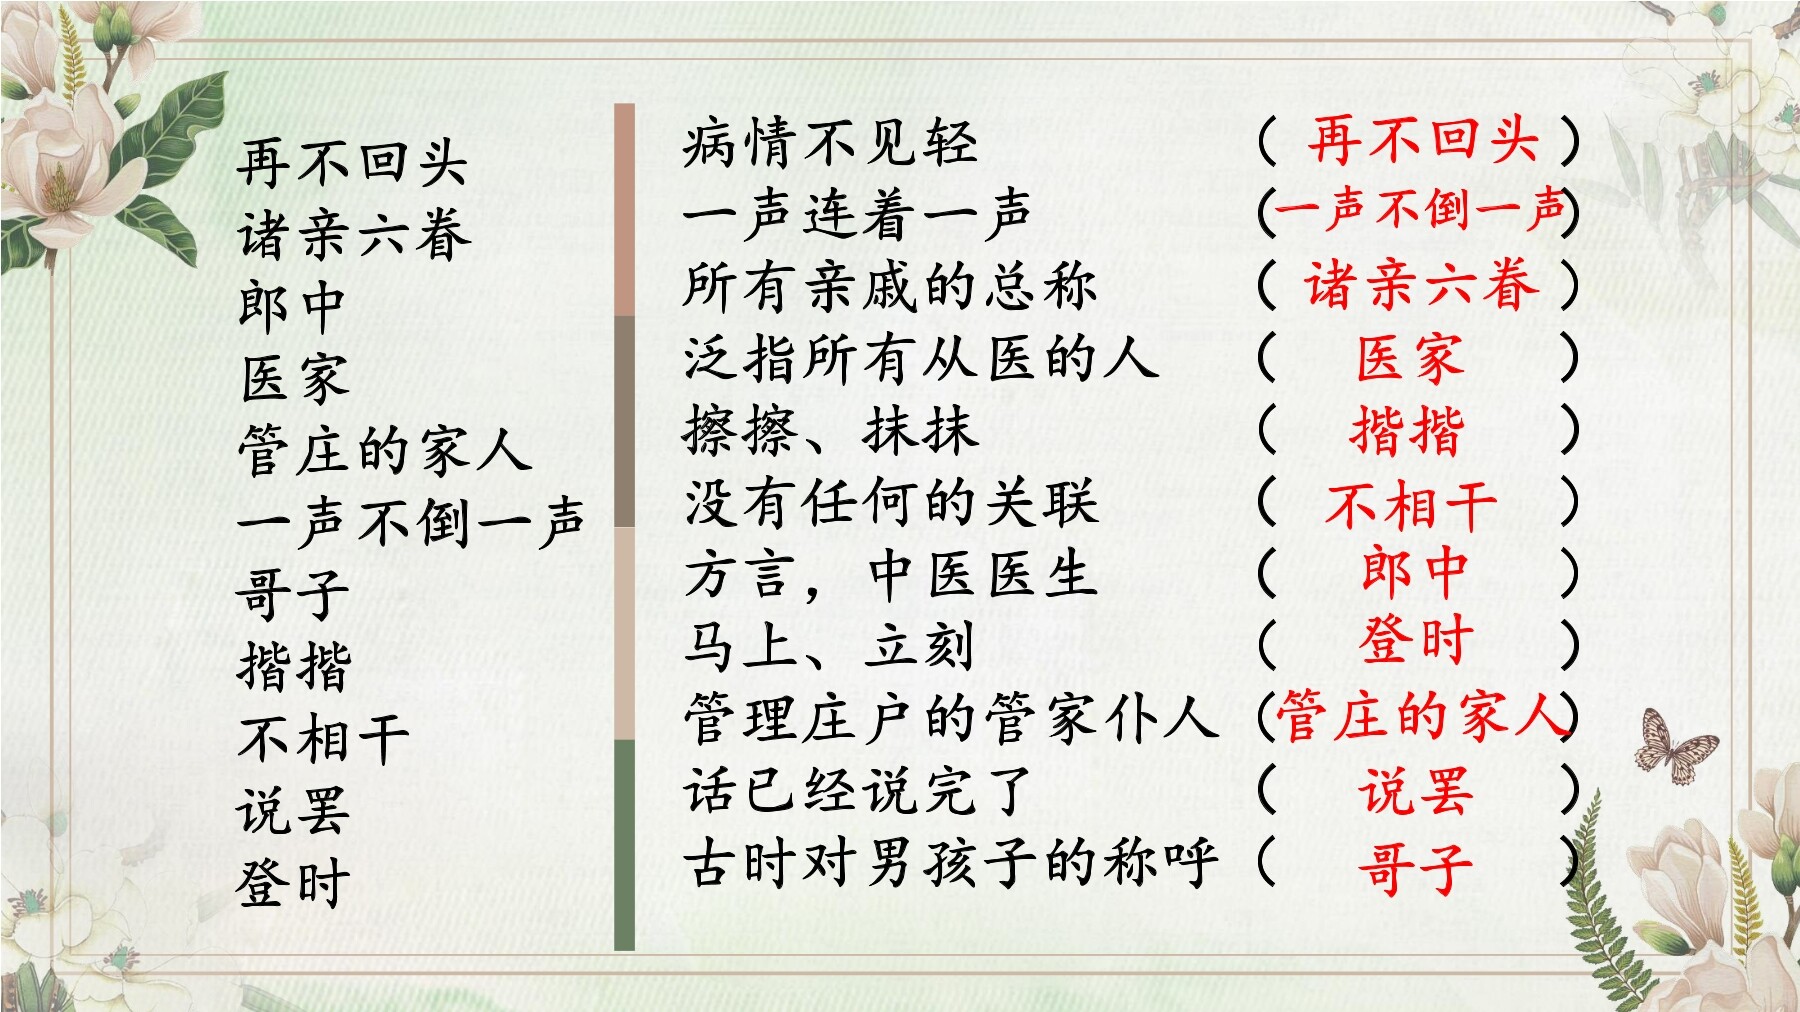 再不回头
诸亲六眷
郎中
医家
管庄的家人
一声不倒一声
哥子
揩揩
不相干
说罢
登时
病情不见轻 （再不回头）
一声连着一声 （一声不倒一声）
所有亲戚的总称 （诸亲六眷）
泛指所有从医的人 （医家）
擦擦、抹抹 （揩揩）
没有任何的关联 （不相干）
方言，中医医生 （郎中）
马上、立刻 （登时）
管理庄户的管家仆人 （管庄的家人）
话已经说完了 （说罢）
古时对男孩子的称呼 （哥子）